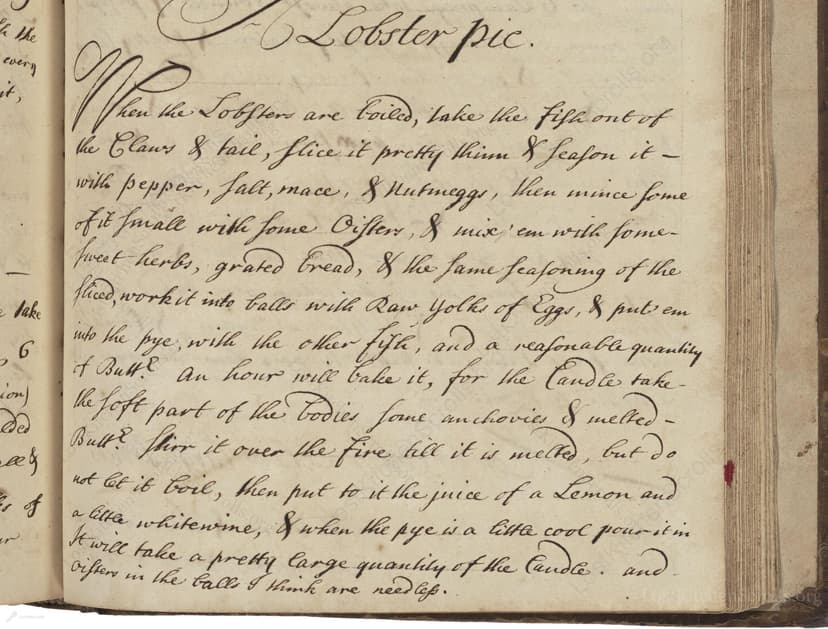 Lobster pie.
When the Lobsters are boiled, take the fish out of
the Claws & tail, slice it pretty thinn & season it –
with pepper, salt, mace, & Nutmeggs, then mince some
of it small with some Oisters, & mix 'em with some-
sweet herbs, grated bread, & the same seasoning of the
sliced, work it into balls with Raw yolks of Eggs, & put 'em
into the pye, with the other fish, and a reasonable quantity
of Buttr. An hour will bake it, for the Caudle take-
the soft part of the bodies some anchovies & melted-
Buttr. stirr it over the fire till it is melted, but do
not let it boil, then put to it the juice of a Lemon and
a little whitewine, & when the pye is a little cool pour it in
It will take a pretty large quantity of the Caudle. and
Oisters in the balls I think are needless.
h the
every
it,
take
6
ion)
&
of